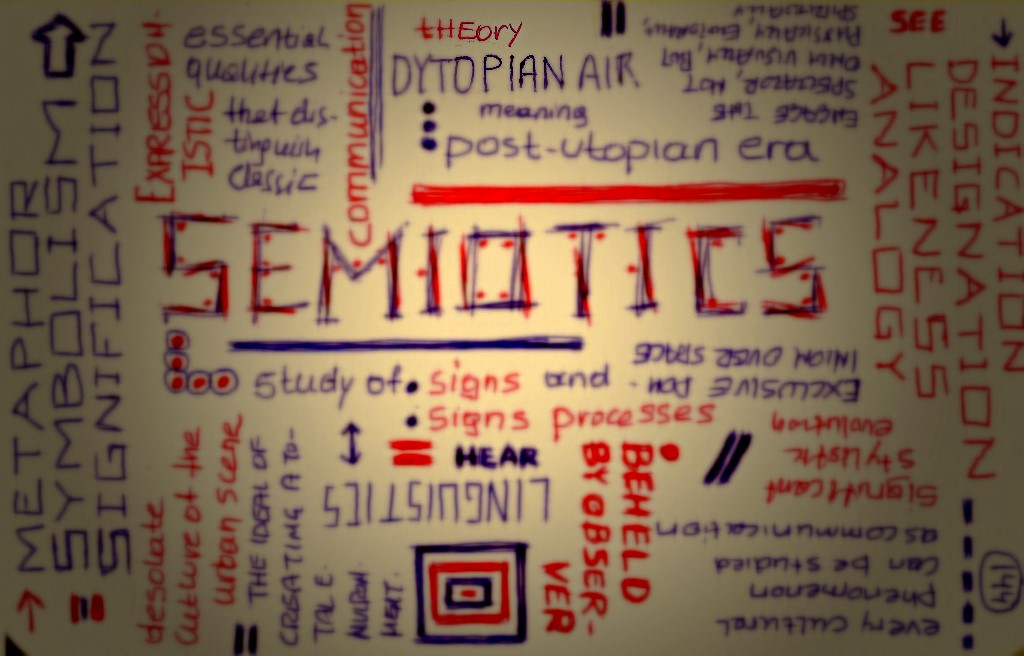 tHEory
DYTOPIAN AIR
meaning
post-utopian era
essential
qualities
that dis-
tinguish
classic
EXPRESSION
ISTIC
communication
SEMIOTICS
Study of signs and
signs processes
= HEAR
LINGUISTICS
BEHELD
BY OBSER-
VER
METAPHOR
SYMBOLISM
SIGNIFICATION
desolate
culture of the
urban scene
= THE IDEAL OF
CREATING A TO-
TALE
HUMAN
MENT.
SEE
INDICATION
DESIGNATION
LIKENESS
ANALOGY
ENGAGE THE
SPECTATOR, NOT
ONLY VISUALLY, BUT
PHYSICALLY, EMOTIONALLY,
SPIRITUALLY
EXCLUSIVE DOM-
INION OVER SPACE
every cultural
phenomenon
can be studied
as communication
significant
stylistic
evolution
144